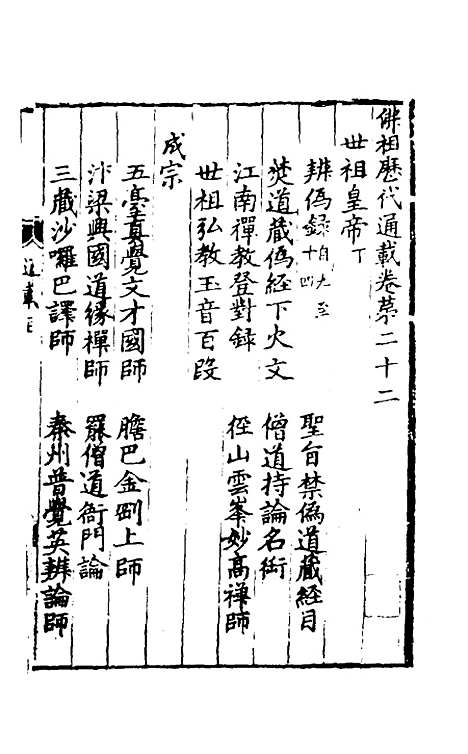 佛祖歷代通載卷苐二十二
世祖皇帝丁
辨僞録自九至十四　聖旨禁僞道藏經目
焚道藏僞經下火文　僧道持論名銜
江南禪教登對録　徑山雲峯妙高禪師
世祖弘教玉音百段
成宗
五臺真覺文才國師　膽巴金剛上師
汴梁興國道緣禪師　羅僧道衙門論
三藏沙囉巴譯師　秦州普覺英辨論師
通載目